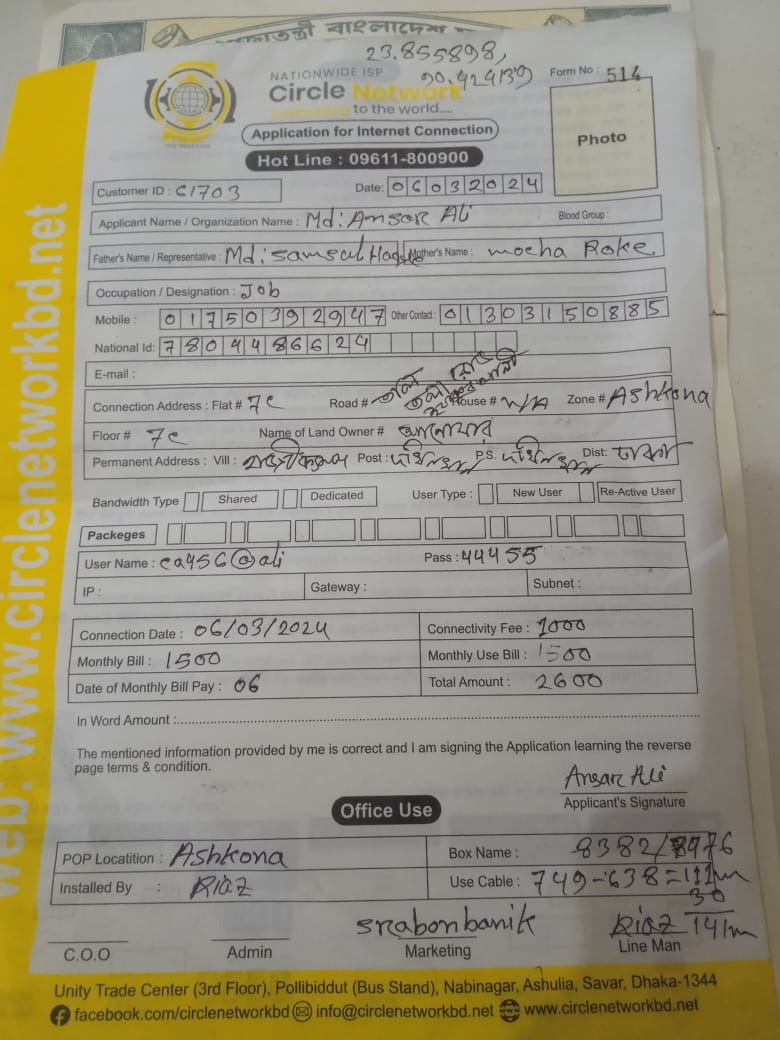 বাংলাদেশ
23.855898,
90.424139
Form No : 514
NATIONWIDE ISP
Circle Network
Connecting to the world....
Application for Internet Connection
Hot Line : 09611-800900
Photo
Customer ID : C1703
Date: 06032024
Applicant Name / Organization Name : Md: Ansar Ali
Blood Group :
Father's Name / Representative : Md: Samsul Haque Mother's Name : mocha Roke
Occupation / Designation : Job
Mobile : 01750392947 Other Contact : 01303150885
National Id: 7804486624
E-mail :
Connection Address : Flat # 7c Road # House # N/A Zone # Ashkona
Floor # 7c Name of Land Owner # আনোয়ার
Permanent Address : Vill : Post : P.S. Dist: ঢাকা
Bandwidth Type Shared Dedicated User Type : New User Re-Active User
Packeges
User Name : ca456@ali Pass : 44455
IP : Gateway : Subnet :
Connection Date : 06/03/2024 Connectivity Fee : 1000
Monthly Bill : 1500 Monthly Use Bill : 1500
Date of Monthly Bill Pay : 06 Total Amount : 2600
In Word Amount :
The mentioned information provided by me is correct and I am signing the Application learning the reverse
page terms & condition.
Ansar Ali
Applicant's Signature
Office Use
POP Locatition : Ashkona Box Name : 8382/8976
Installed By : Riaz Use Cable : 749-638=111m
30
141m
srabonbanik Riaz
C.O.O Admin Marketing Line Man
Unity Trade Center (3rd Floor), Pollibiddut (Bus Stand), Nabinagar, Ashulia, Savar, Dhaka-1344
facebook.com/circlenetworkbd info@circlenetworkbd.net www.circlenetworkbd.net
web: www.circlenetworkbd.net